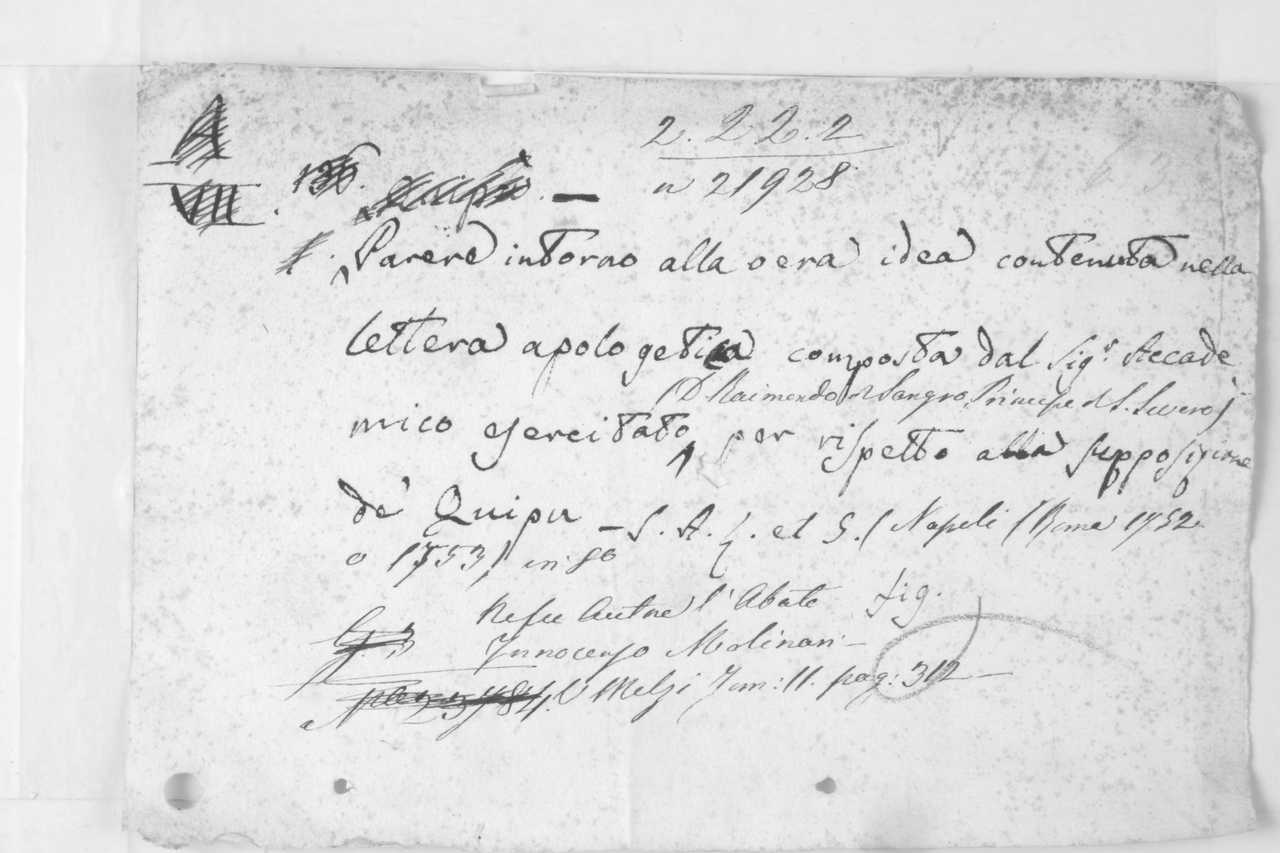 2. 22. 2
n 21928
Parere intorno alla vera idea contenuta nella
lettera apologetica composta dal Sigr. Accade
(D. Raimondo di Sangro Principe di S. Severo)
mico esercitato, per rispetto alla supposizione
de' Quipu – S. A. L. et S. (Napoli (Roma 1752
o 1753) in 8o
fig.
Autore l'Abate
Innocenzo Molinari –
V Melzi Tom: II. pag: 312 –